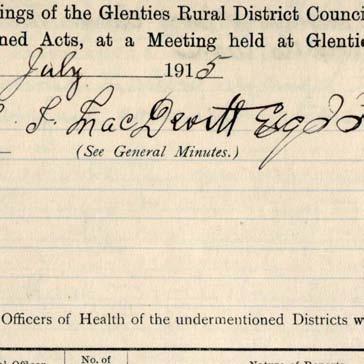 ings of the Glenties Rural District Counci
ned Acts, at a Meeting held at Glentie
July 1915
J. MacDevitt Esq J
(See General Minutes.)
Officers of Health of the undermentioned Districts w
No. of